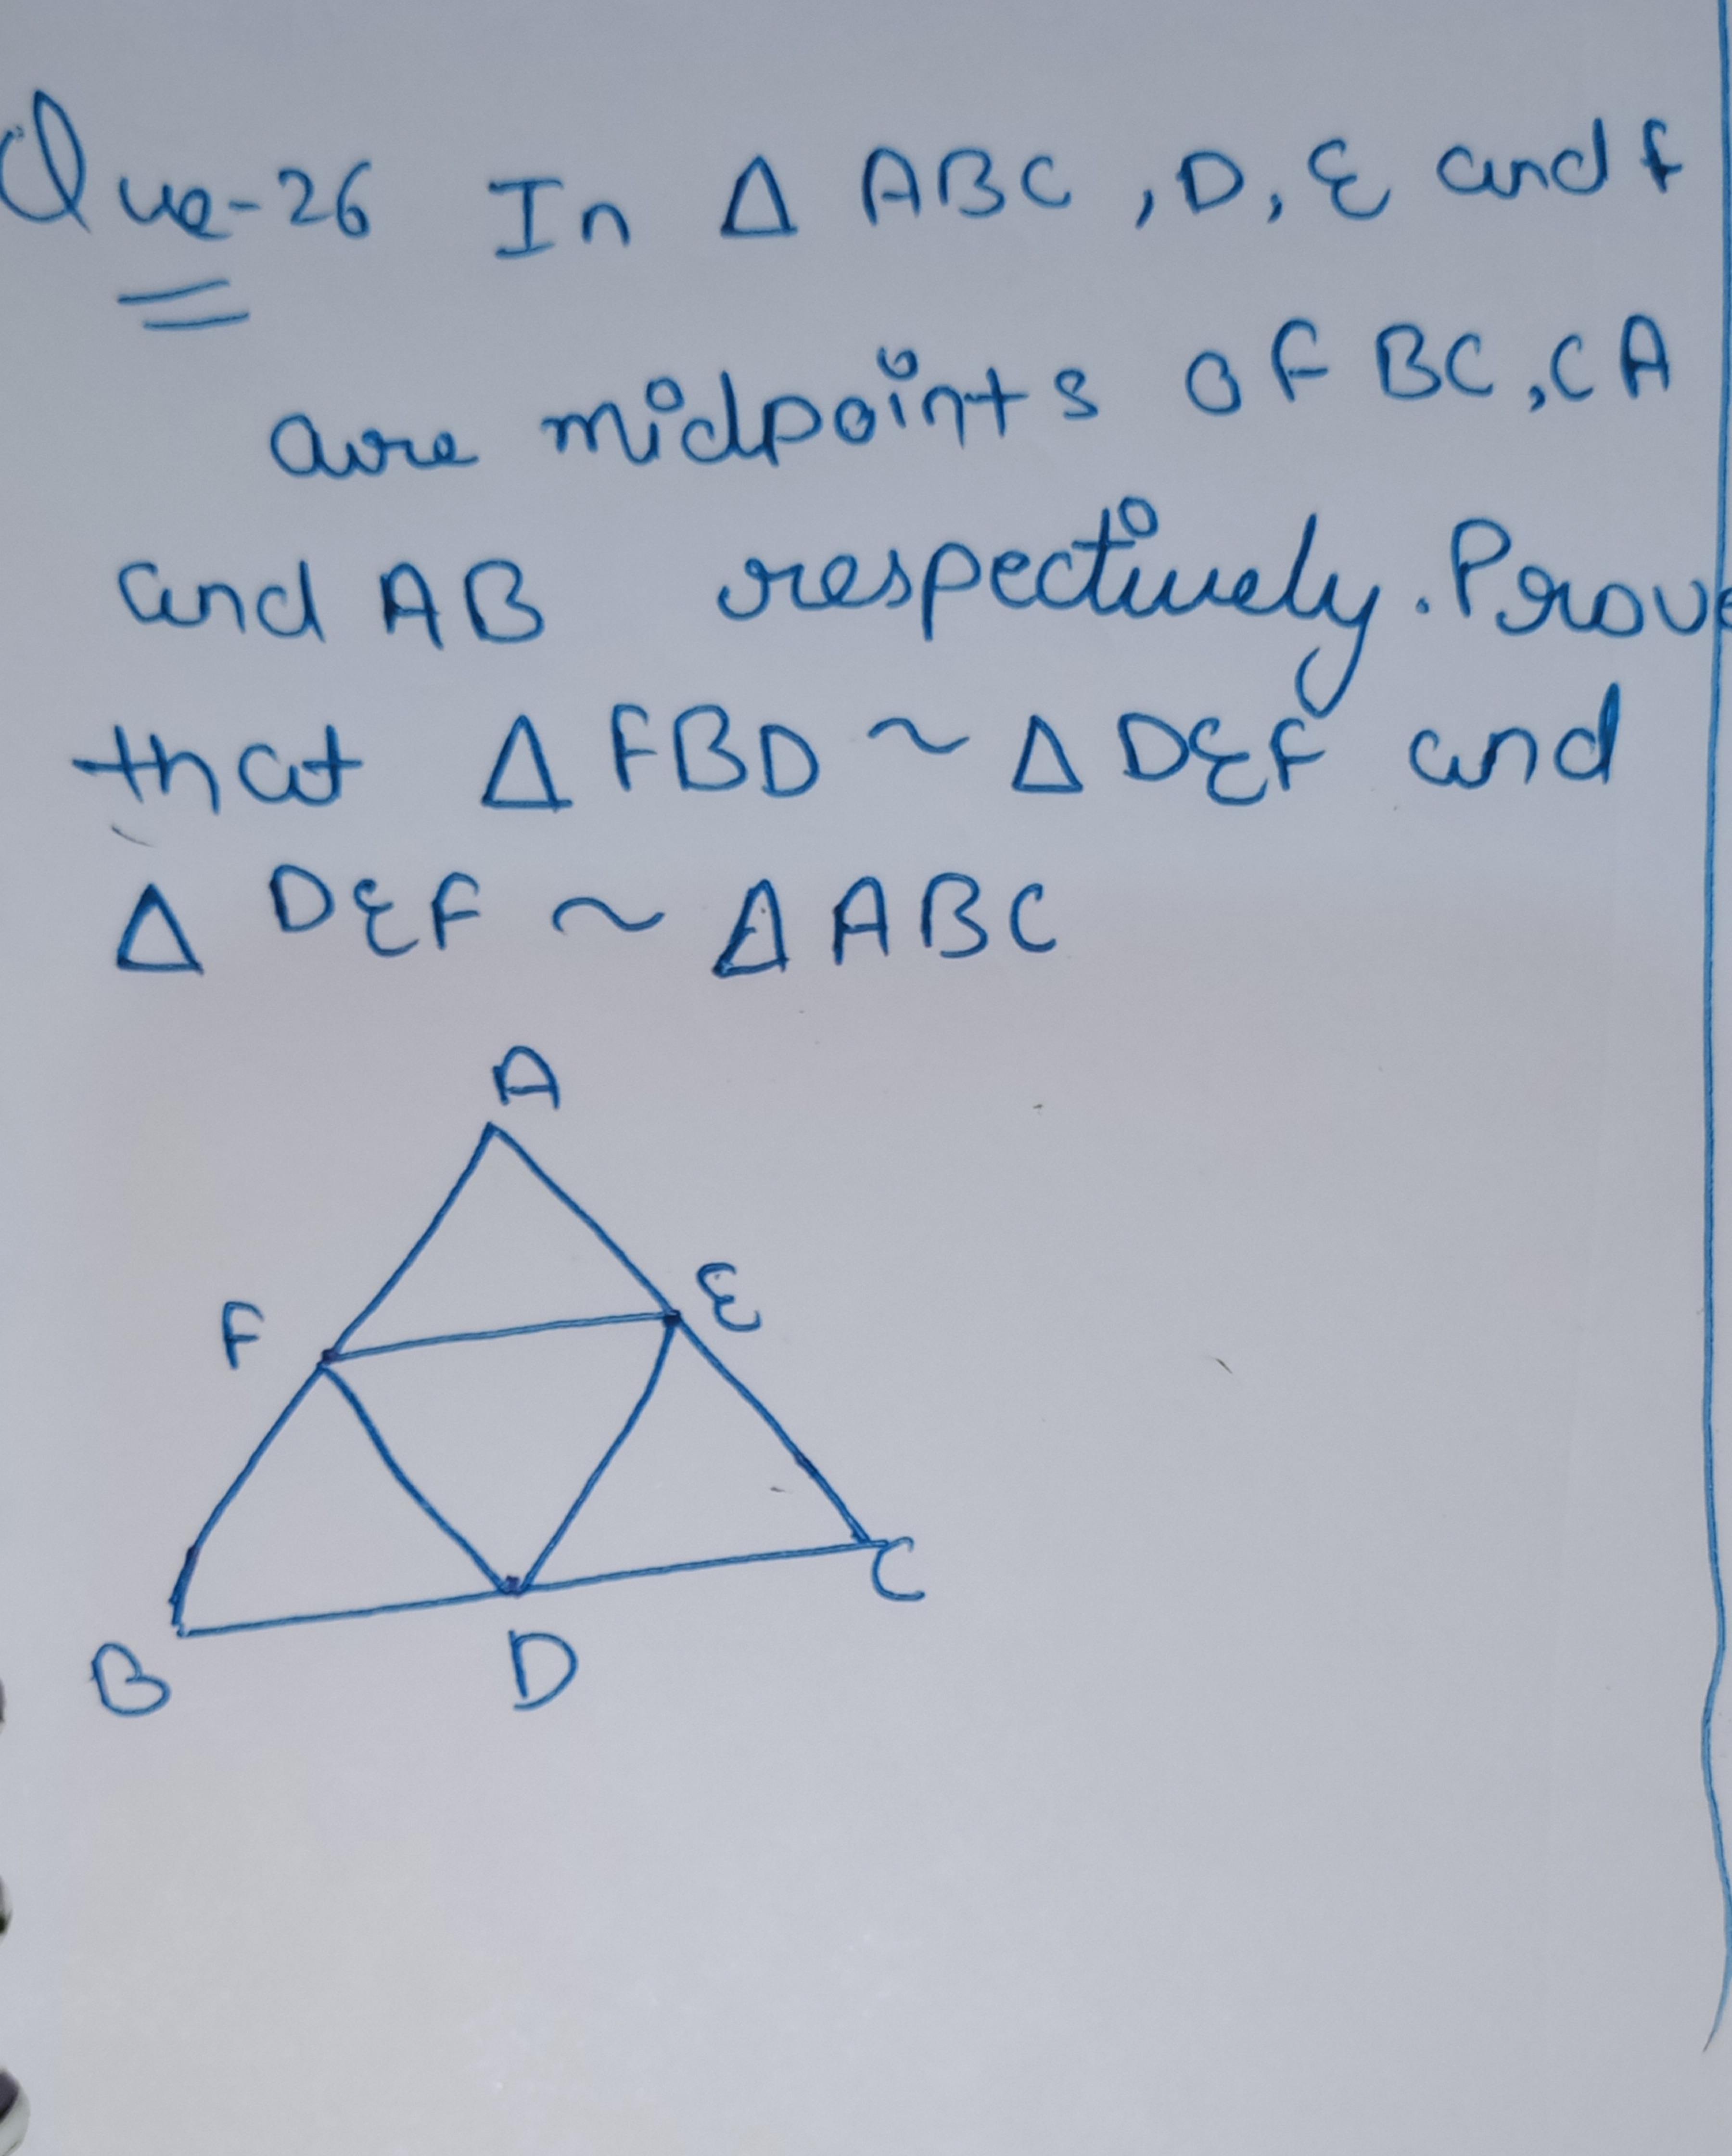 Que-26 In Δ ABC, D, E and f
are midpoints of BC, CA
and AB respectively. Prove
that Δ FBD ~ Δ DEF and
Δ DEF ~ Δ ABC
A
E
F
C
B
D